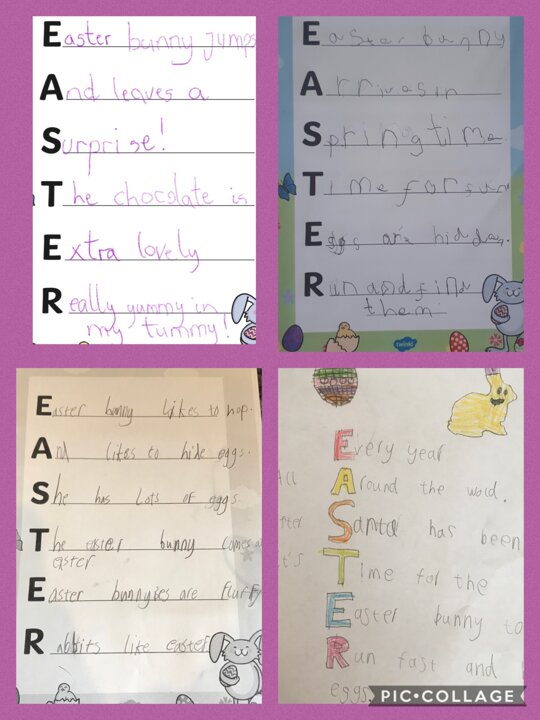 Easter bunny jumps
And leaves a
Surprise!
The chocolate is
Extra lovely
Really yummy in
my tummy!
Easter bunny
Arrives in
Springtime
Time for fun
Eggs are hidden.
Run and find
them
twinkl
Easter bunny likes to hop.
And likes to hide eggs.
She has lots of eggs.
The easter bunny comes
easter
Easter bunnyies are fluffy
Rabbits like easter
Every year
Around the world.
Santa has been
Time for the
Easter bunny to
Run fast and
eggs
PIC•COLLAGE